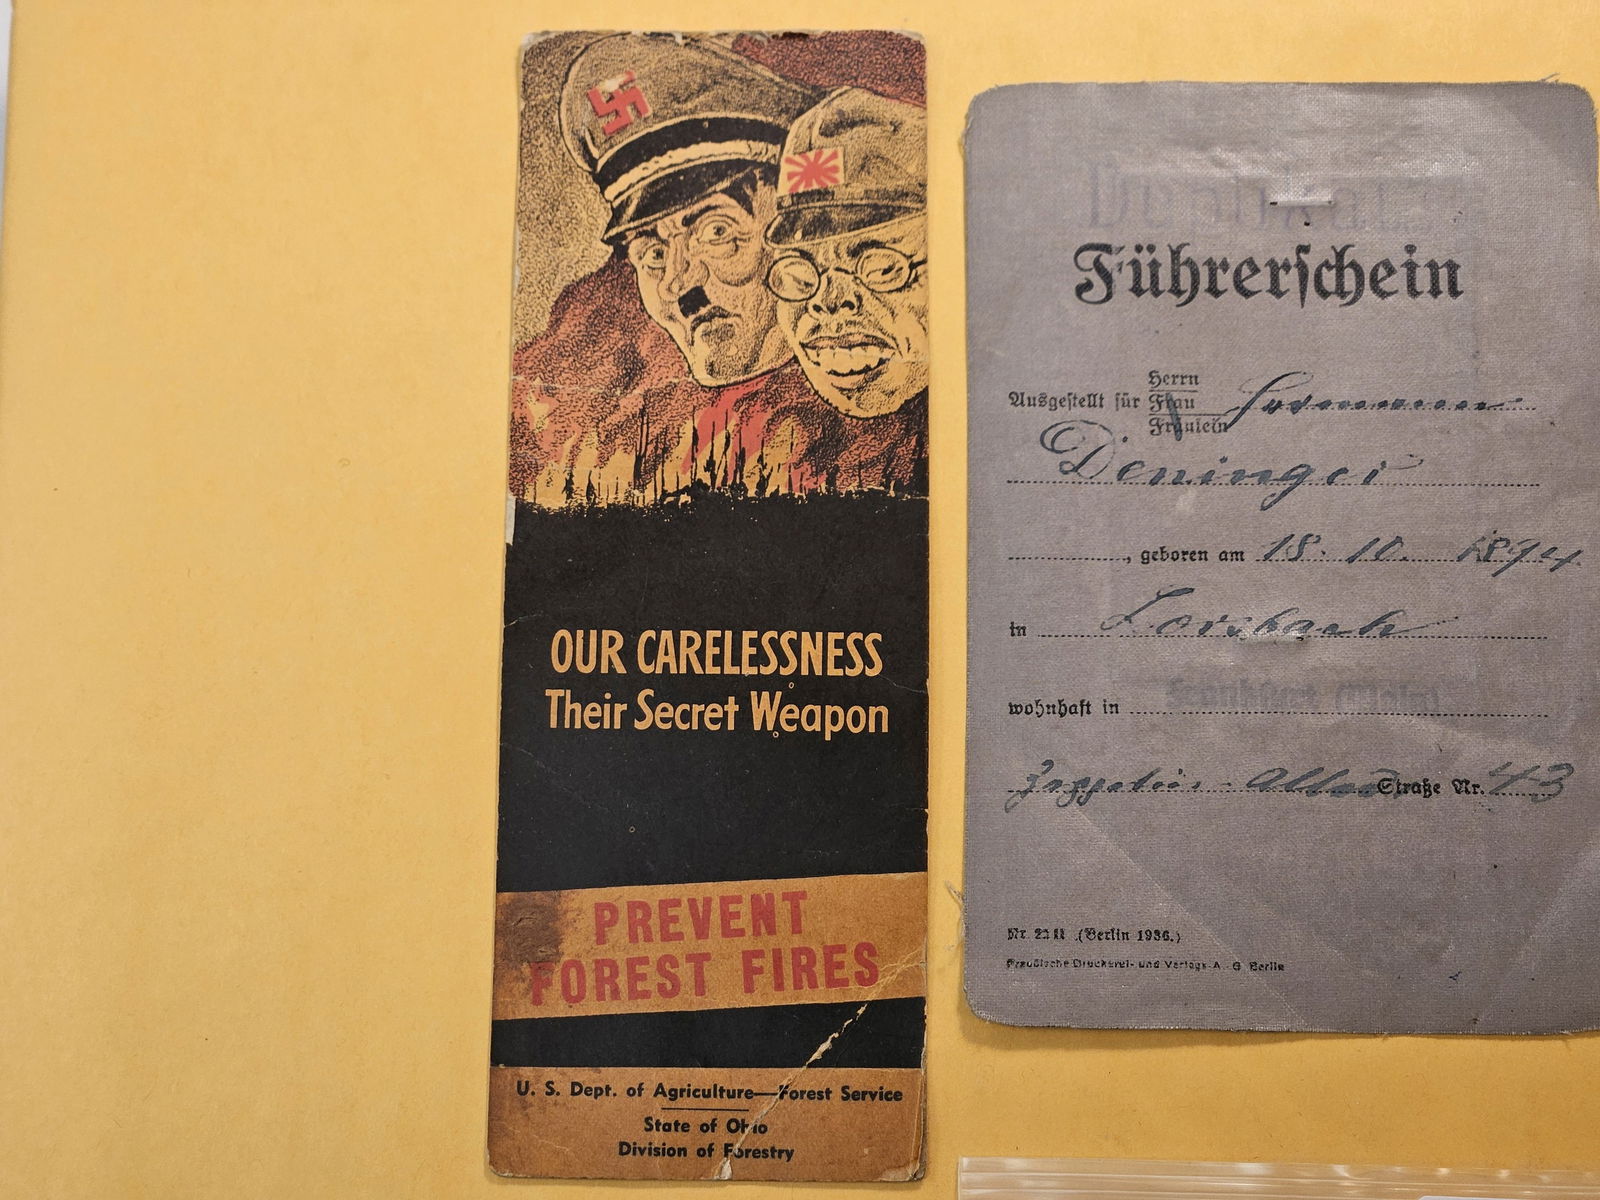 OUR CARELESSNESS
Their Secret Weapon
PREVENT
FOREST FIRES
U. S. Dept. of Agriculture—Forest Service
State of Ohio
Division of Forestry
Führerschein
Herrn
Ausgestellt für Frau
Fräulein
Deninger
, geboren am 18. 10. 1894.
in Lorsbach
wohnhaft in
Straße Nr. 43
(Berlin 1936.)
Preußische Druckerei- und Verlags-A.-G. Berlin